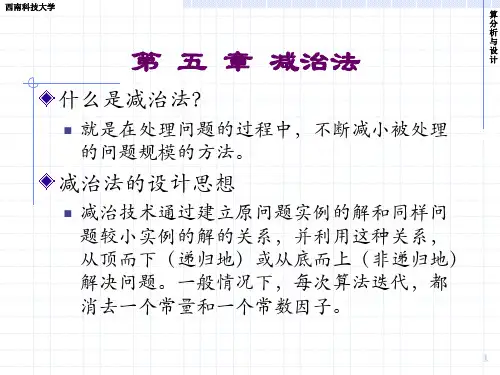 西南科技大学
算分析与设计
第 五 章 减治法
什么是减治法?
就是在处理问题的过程中，不断减小被处理
的问题规模的方法。
减治法的设计思想
减治技术通过建立原问题实例的解和同样问
题较小实例的解的关系，并利用这种关系，
从顶而下（递归地）或从底而上（非递归地）
解决问题。一般情况下，每次算法迭代，都
消去一个常量和一个常数因子。
1